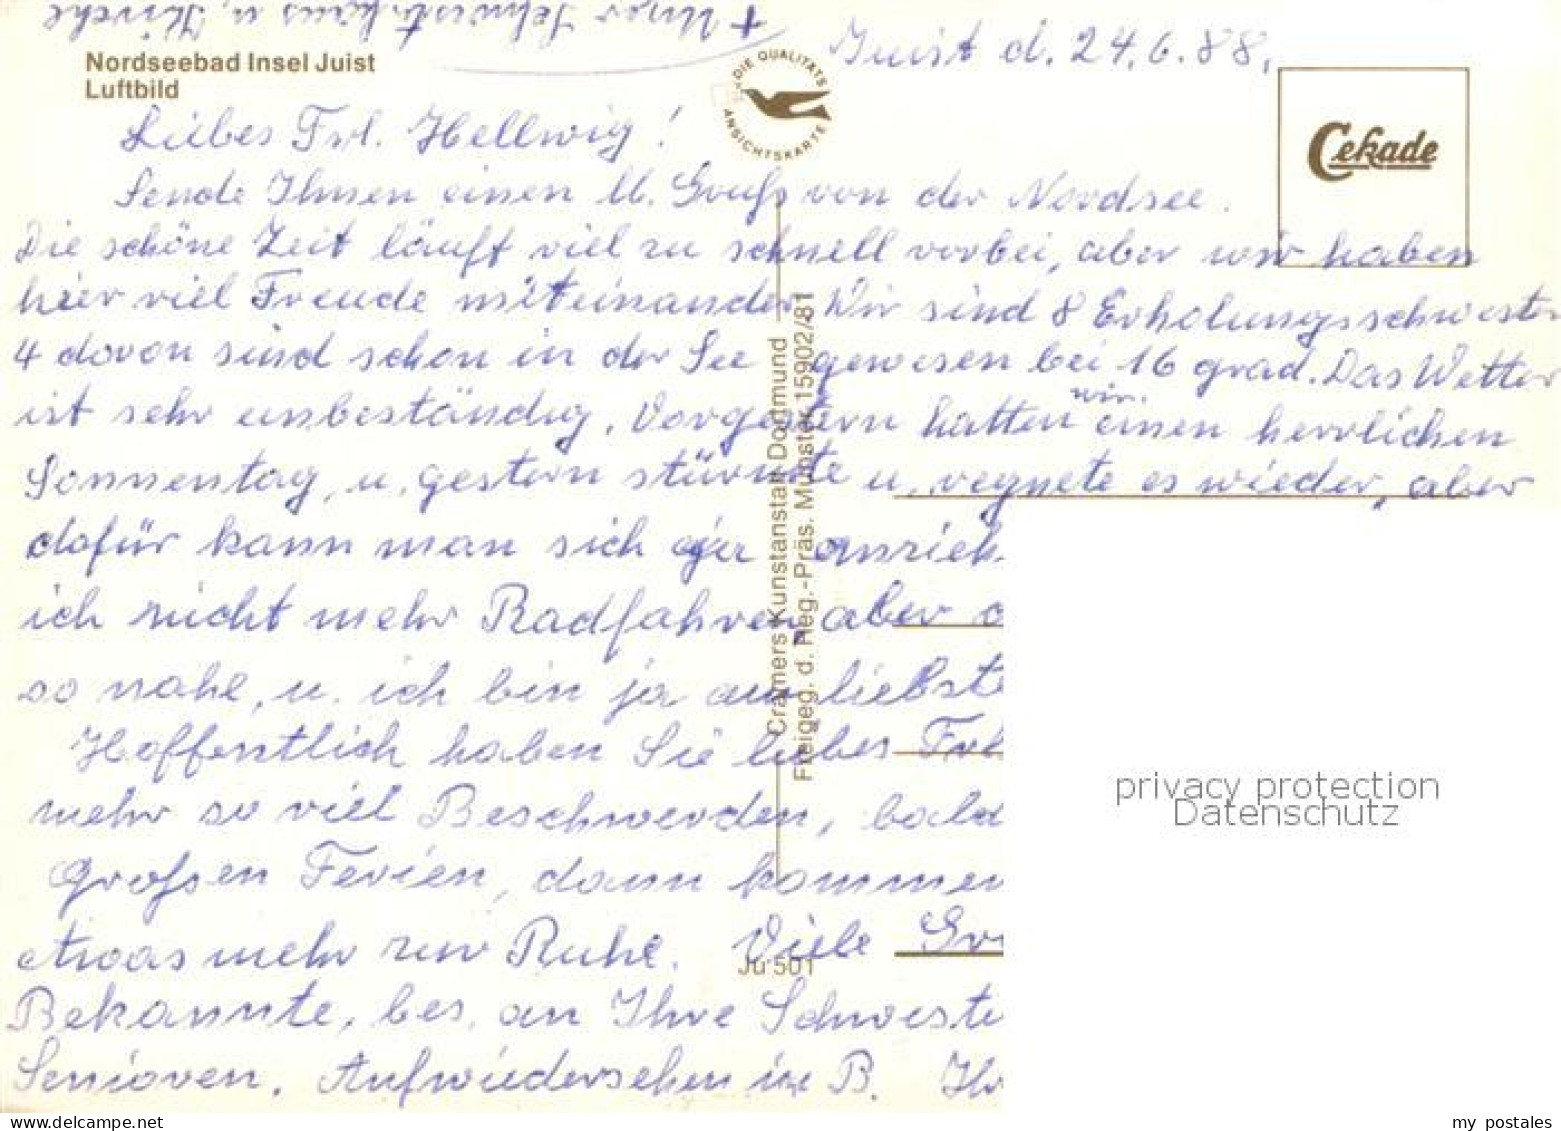 + Unser Schwesternhaus u. Kirche
Nordseebad Insel Juist
Luftbild
DIE QUALITÄTS
ANSICHTSKARTE
Juist d. 24.6.88.
Cekade
Liebes Frl. Hellwig!
Sende Ihnen einen lb. Gruß von der Nordsee.
Die schöne Zeit läuft viel zu schnell vorbei, aber wir haben
hier viel Freude miteinander. Wir sind 8 Erholungsschwestern
4 davon sind schon in der See gewesen bei 16 grad. Das Wetter
ist sehr unbeständig. Vorgestern hatten wir einen herrlichen
Sonnentag, u. gestern stürmte u. regnete es wieder, aber
dafür kann man sich anzieh
ich nicht mehr Radfahren, aber
so nahe, u. ich bin ja am liebste
Hoffentlich haben Sie liebes Frl
mehr so viel Beschwerden, bald
großen Ferien, dann kommen
etwas mehr zur Ruhe. Viele Gr
Bekannte, bes. an Ihre Schweste
Senioren. Aufwiedersehen in B. Ihr
Cramers Kunstanstalt Dortmund
Freigeg. d. Reg.-Präs. Münster 15902/81
Ju 501
privacy protection
Datenschutz
my postales